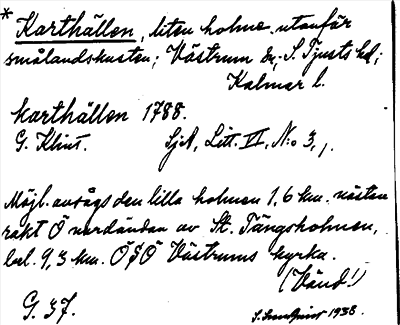 * Karthällen, liten holme utanför
smålandskusten; Västrum sn; S. Tjusts hd;
Kalmar l.
Karthällen 1788.
G. Klint. SjA, Litt. VI, N:o 3, 1.
Möjl. avsågs den lilla holmen 1,6 km. nästan
rakt Ö nordändan av St. Tängsholmen,
bel. 9,3 km. ÖSÖ Västrums kyrka.
(Vänd!)
G. 37. 1938.